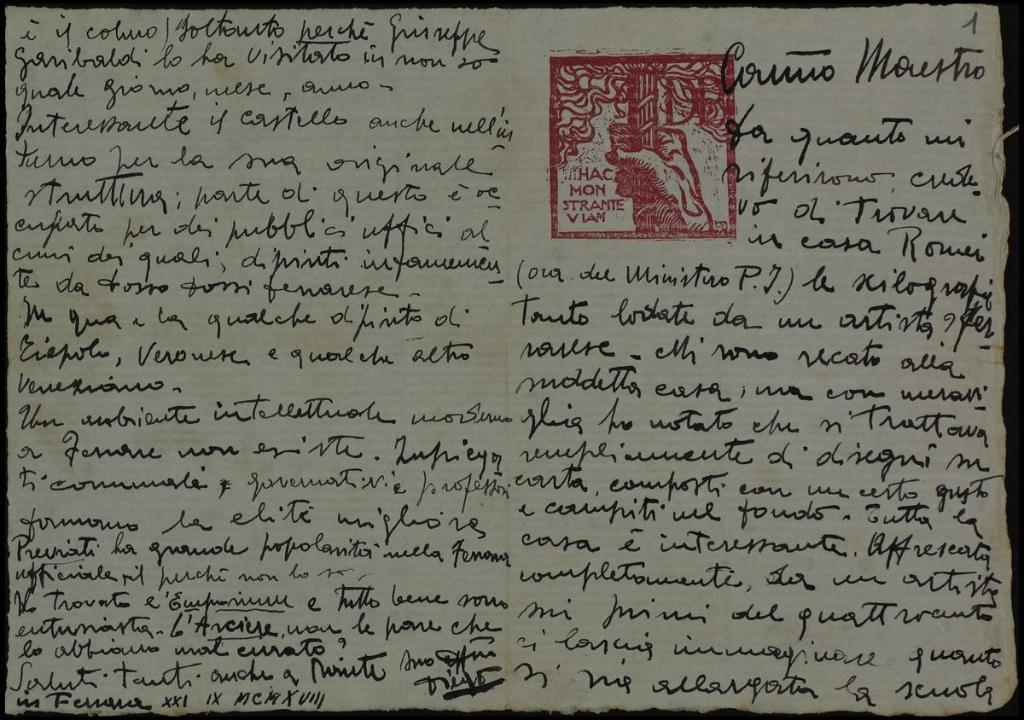 1
Carissimo Maestro
HAC
MON
STRANTE
VIAM
da quanto mi
riferirono, crede-
vo di trovare
in casa Romei
(ora del Ministero P.I.) le xilografie
tanto lodate da un artista ferrarese
rarese - Mi sono recato alla
suddetta casa, ma con meravi-
glia ho notato che si trattava
semplicemente di disegni su
carta, composti con un certo gusto
e compiti nel fondo. Tutta la
casa è interessante. Affrescata
completamente, da un artista
sui primi del quattrocento
ci lascia immaginare quanto
si sia allargata la scuola
è il colmo) soltanto perchè Giuseppe
Garibaldi lo ha visitato in non so
quale giorno, mese, anno -
Interessante il castello anche nell'in
terno per la sua originale
struttura; parte di questo è oc
cupato per dei pubblici uffici al
cuni dei quali, dipinti
te da Dosso Dossi ferrarese -
In qua e la qualche dipinto di
Tiepolo, Veronese e qualche altro
veneziano -
Un ambiente intellettuale moderno
a Ferrara non esiste. Impiega
ti comunali e governativi e professori
formano la elite migliore
Previati ha grande popolarità nella Ferrara
ufficiale, il perchè non lo so.
Ho trovato e l'Emporium e tutto bene sono
entusiasta - L'Arciere, non le pare che
lo abbiano mal curato?
Saluti tanti anche a suo
in Ferrara XXI IX MCMXVIII